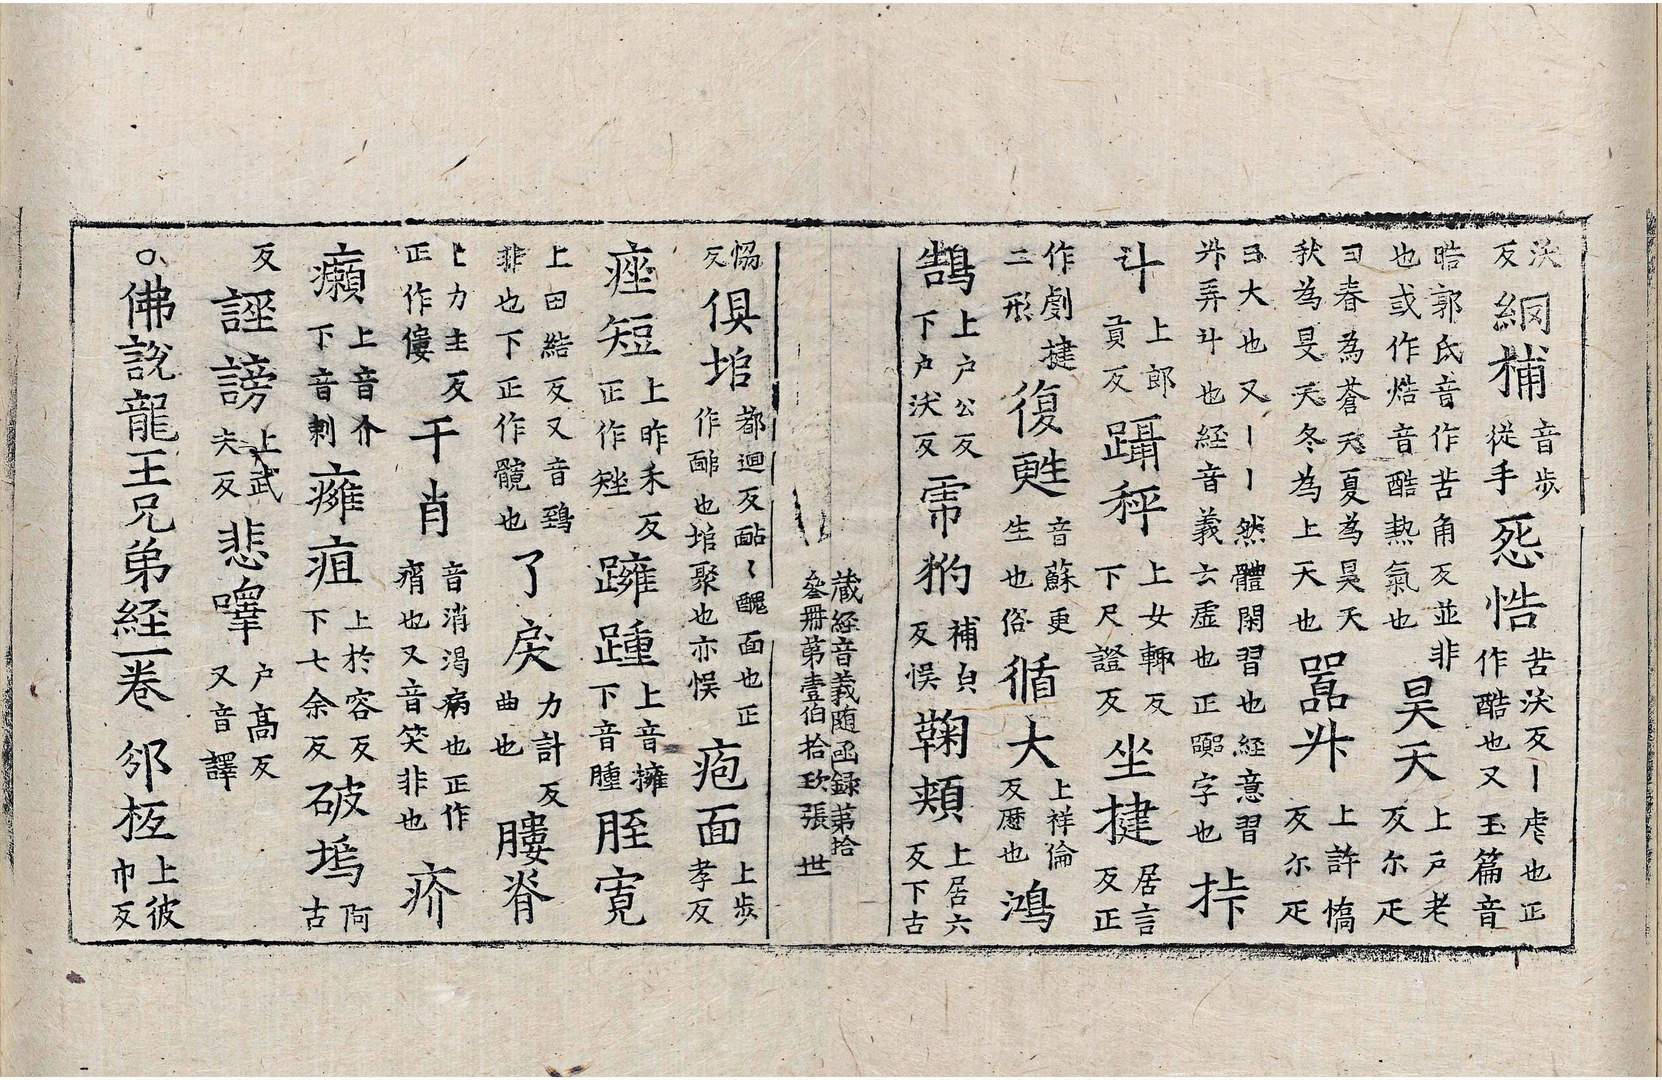 沃反綱補音步從手惌悎苦沃反丨虐也正作酷也又玉篇音
晧郭氏音作苦角反並非也或作焅音酷熱氣也昊天上戶老反尔疋
曰春為蒼天夏為昊天秋為旻天冬為上天也嚻升上許憍反尔疋
曰大也又丨丨然體閑習也経意習升弄斗也経音義云虛也正䫜字也挊
斗上郎貢反躡秤上女輒反下尺證反坐揵居言反正
作劇揵二形復甦音蘇更生也俗循大上祥倫反歷也鴻
鵠上戶公反下戶沃反霈犳補皃反悮鞠頰上居六反下古
蔵経音義随函録第拾
叁冊第壹伯拾玖張 世
恊反俱㙛都迴反䩅丶醜面也正作䣙也㙛聚也亦悮疱面上步孝反
痤短上昨禾反正作矬躃踵上音擁下音腫胵寬
上田結反又音鵄非也下正作髖也了戾力計反曲也膢脊
上力主反正作僂干肖音消渴病也正作痟也又音笑非也疥
癩上音介下音剌癰疽上於容反下七余反破塢阿古
反誣謗上武夫反悲嘷戶高反又音譯
○佛說龍王兄弟経一卷 邠柩上彼巾反